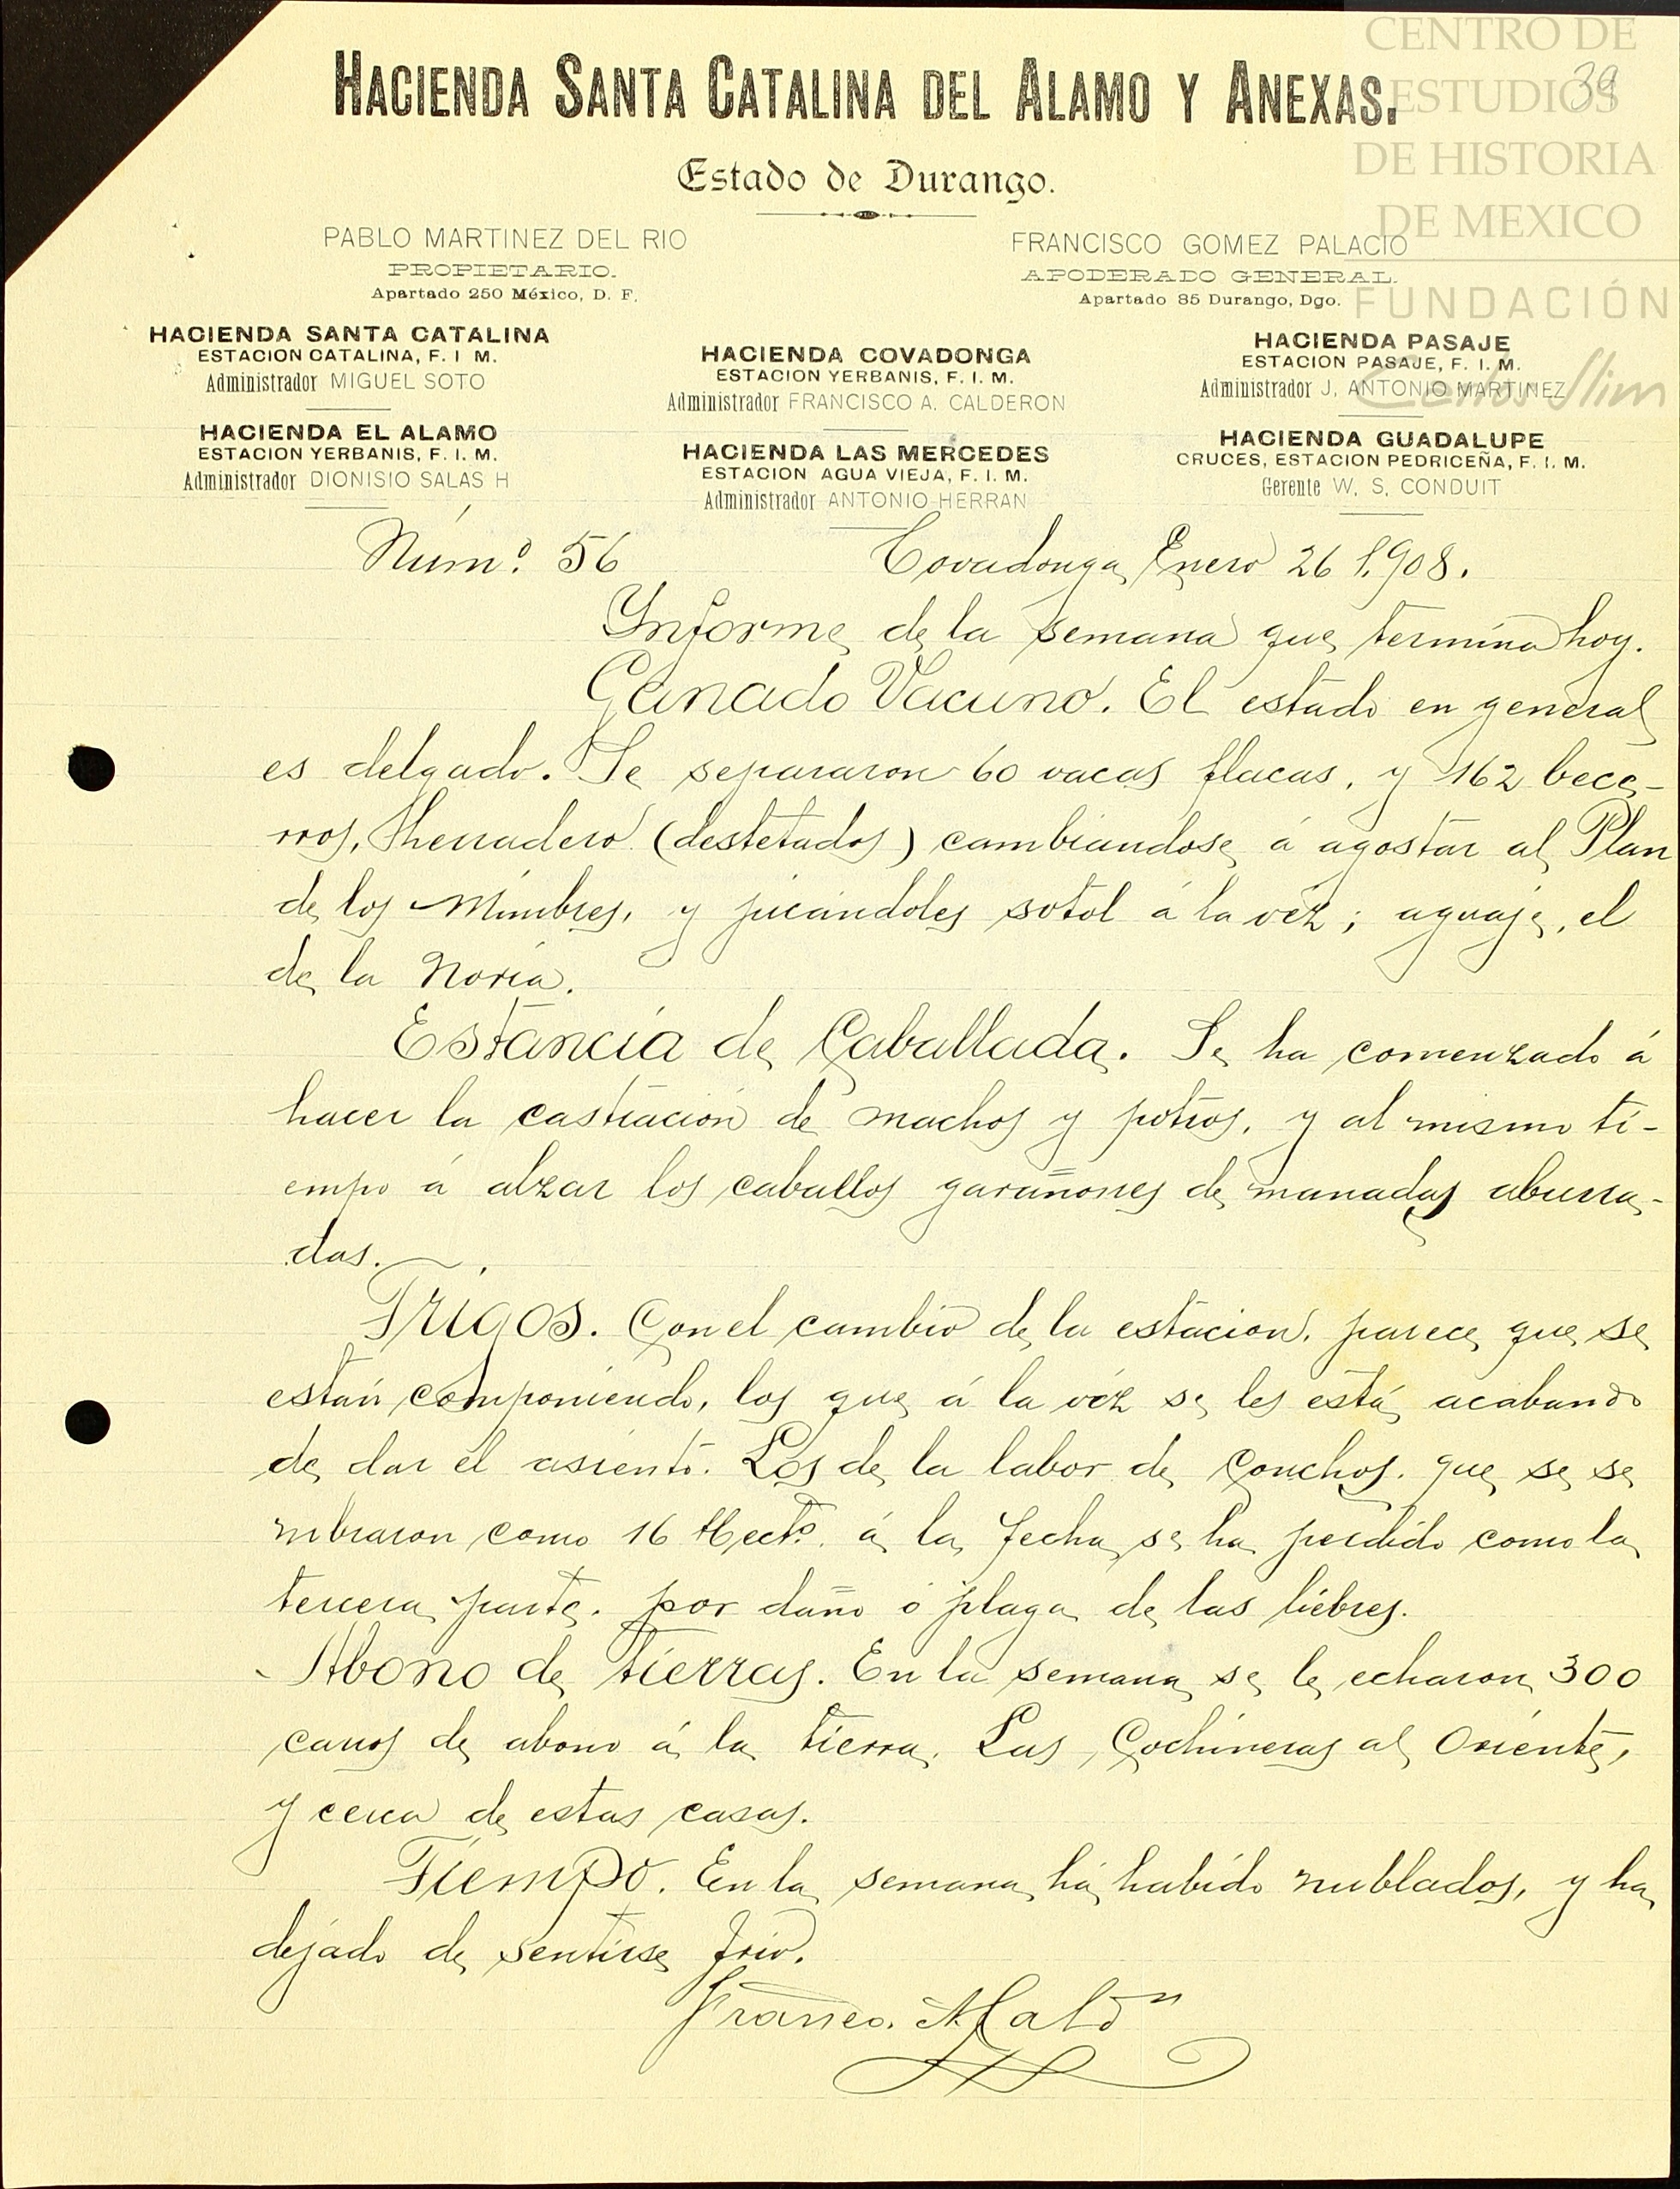 CENTRO DE
ESTUDIOS
DE HISTORIA
DE MEXICO
FUNDACIÓN
Carlos Slim
39
HACIENDA SANTA CATALINA DEL ALAMO Y ANEXAS.
Estado de Durango.
PABLO MARTINEZ DEL RIO
PROPIETARIO.
Apartado 250 México, D. F.
FRANCISCO GOMEZ PALACIO
APODERADO GENERAL.
Apartado 85 Durango, Dgo.
HACIENDA SANTA CATALINA
ESTACION CATALINA, F. I M.
Administrador MIGUEL SOTO
HACIENDA EL ALAMO
ESTACION YERBANIS, F. I. M.
Administrador DIONISIO SALAS H
HACIENDA COVADONGA
ESTACION YERBANIS, F. I. M.
Administrador FRANCISCO A. CALDERON
HACIENDA LAS MERCEDES
ESTACION AGUA VIEJA, F. I. M.
Administrador ANTONIO HERRAN
HACIENDA PASAJE
ESTACION PASAJE, F. I. M.
Administrador J, ANTONIO MARTINEZ
HACIENDA GUADALUPE
CRUCES, ESTACION PEDRICEÑA, F. I. M.
Gerente W. S. CONDUIT
Núm.º 56 Covadonga, Enero 26 1,908.
Ynforme de la semana que termina hoy.
Ganado Vacuno. El estado en general
es delgado. Se separaron 60 vacas flacas, y 162 bece-
rros, Sherradero (destetados) cambiandose á agostar al Plan
de los Mimbres, y picándoles sotol á la véz; aguaje, el
de la Noria.
Estancia de Caballada. Se ha comenzado á
hacer la castración de machos y potros, y al mismo ti-
empo á alzar los caballos garañones de manadas aburra-
das.
Trigos. Con el cambio de la estacion, parece que se
están componiendo, los que á la véz se les está acabando
de dar el asiento. Los de la labor de Conchos, que se se
mbraron como 16 Hects. á la fecha se ha perdido como la
tercera parte, por daño ó plaga de las liebres.
Abono de tierras. En la semana se le echaron 300
carros de abono á la tierra, Las Cochineras al Oriente,
y cerca de estas casas.
Tiempo. En la semana há habido nublados, y ha
dejado de sentirse frio.
Franco. A. Caldn